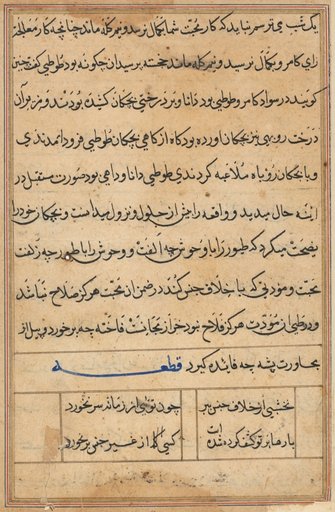 یک شب می ترسم نباید که کار محبت شما بکمال نرسد و نیم کله ماند چنانچه کار معظم
رای کامرو بکمال نرسید و نیم کله ماند خجسته پرسید آن چگونه بود طوطی گفت چنین
گویند در سواد کامرو طوطی بود دانا و بر درختی بچکان کشیده بودند و در زیر آن
درخت روبهی نیز بچکان آورده بود گاه از گاهی بچکان طوطی فرود آمدندی
و با بچکان روباه ملاعبه کردندی طوطی دانا و داهی بود صورت مستقبل در
آینه حال بدید و واقعه را پیش از حلول و نزول میدانست و بچکان خود را
نصیحت میکرد که طیور را با وحوش چه الفت و وحوش را با طیور چه زلفت
محبت و مودتی که با خلاف جنس کنند در ضمن آن محبت هرگز صلاح نباشد
و در طی آن مودت هرگز فلاح نبود خر از مجانست فاخته چه برخورد و پیل از
مجاورت پشه چه فایده گیرد قطعه
نخشبی از خلاف جنس ببر چون توئی از زمانه سر نخورد
بارها بر تو کشف کرده شده است کسی گه از غیر جنس بر نخورد